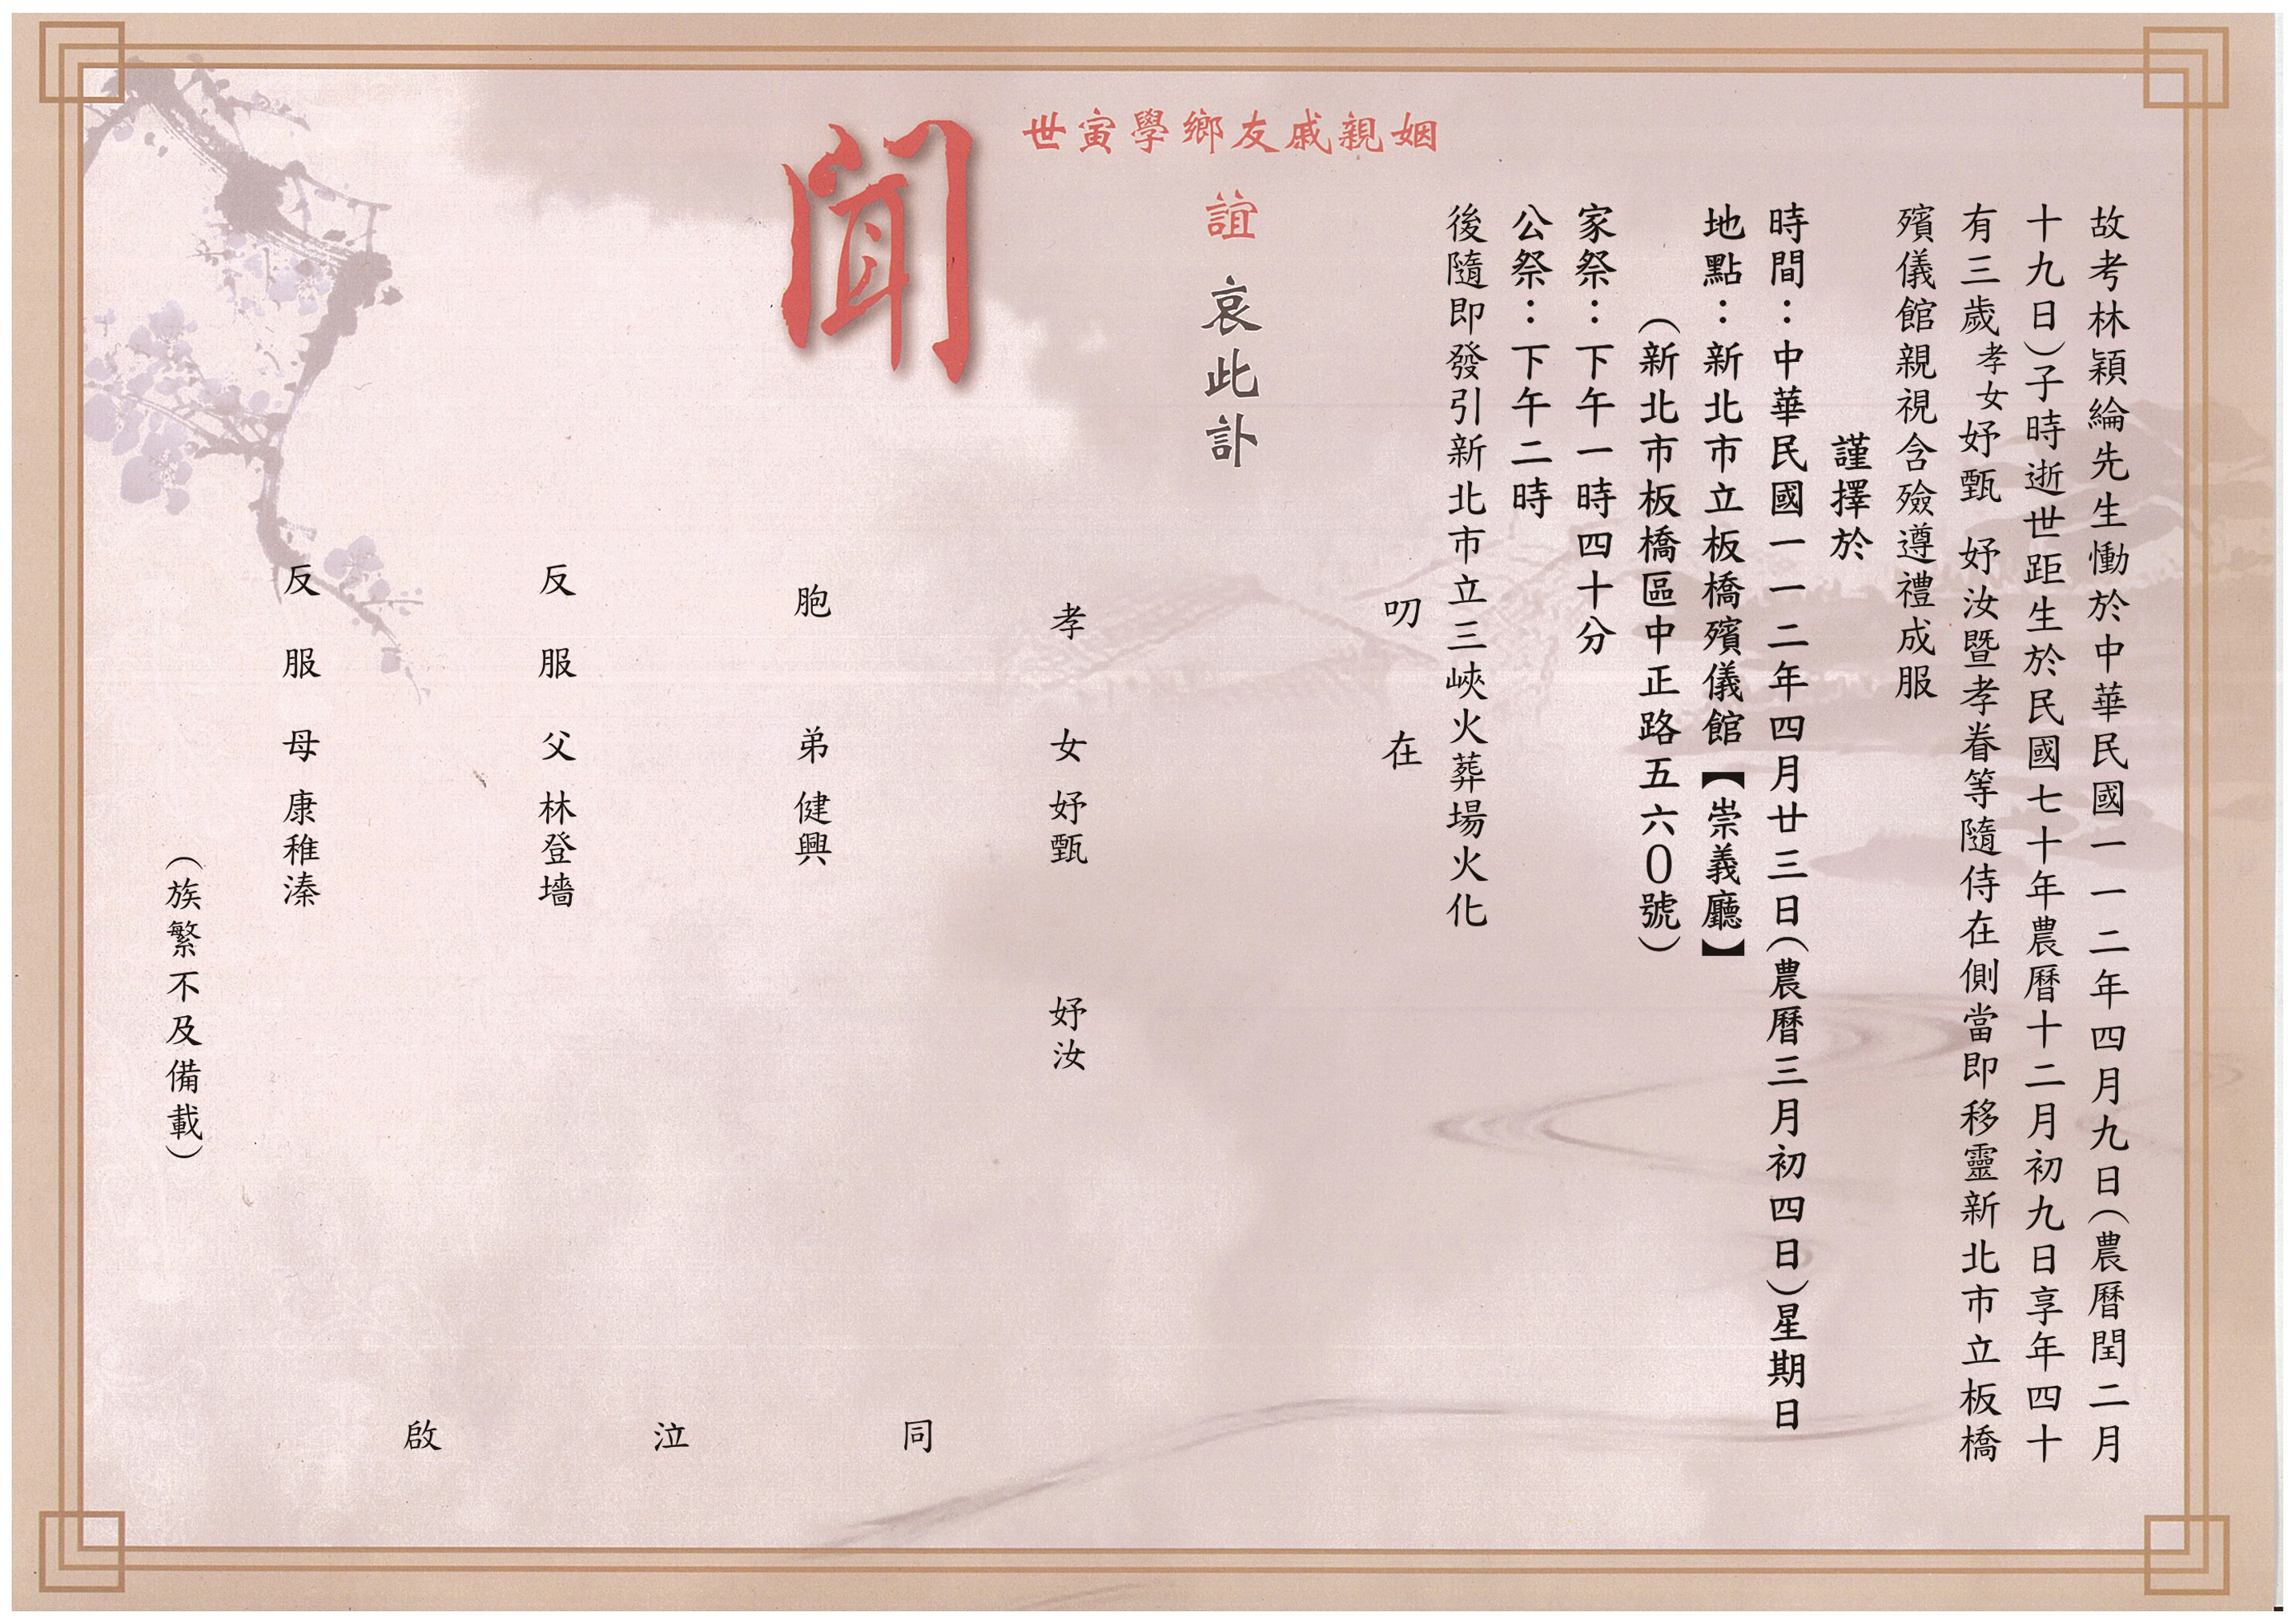 故考林穎綸先生慟於中華民國一一二年四月九日(農曆閏二月
十九日)子時逝世距生於民國七十年農曆十二月初九日享年四十
有三歲孝女妤甄　妤汝暨孝眷等隨侍在側當即移靈新北市立板橋
殯儀館親視含殮遵禮成服
謹擇於
時間：中華民國一一二年四月廿三日(農曆三月初四日)星期日
地點：新北市立板橋殯儀館【崇義廳】
(新北市板橋區中正路五六0號)
家祭：下午一時四十分
公祭：下午二時
後隨即發引新北市立三峽火葬場火化
叨在
姻親戚友鄉學寅世
誼 哀此訃
聞
孝女 妤甄　妤汝
胞弟 健興
反服父 林登墻
反服母 康稚溱
(族繁不及備載)
同泣啟